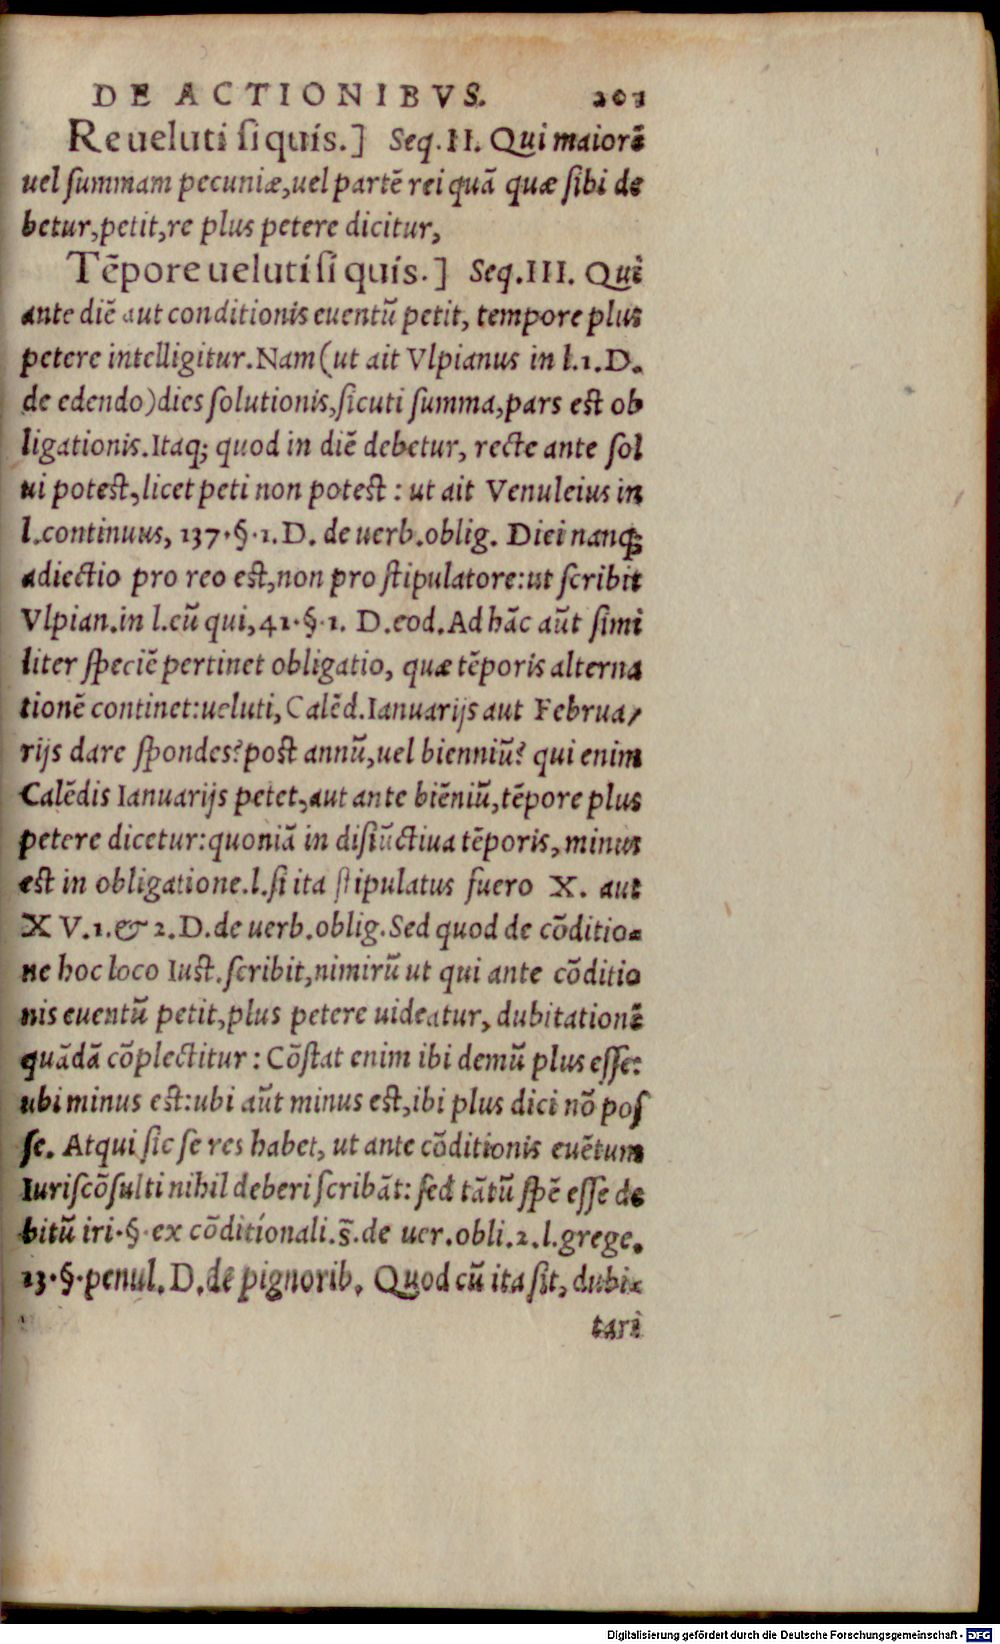 DE ACTIONIBVS. 203
Re ueluti si quis.] Seq. II. Qui maiorē
uel summam pecuniæ, uel partē rei quā quæ sibi de
betur, petit, re plus petere dicitur,
Tēpore ueluti si quis.] Seq. III. Qui
ante diē aut conditionis euentū petit, tempore plus
petere intelligitur. Nam (ut ait Vlpianus in l. 1. D.
de edendo) dies solutionis, sicuti summa, pars est ob
ligationis. Itaq; quod in diē debetur, recte ante sol
ui potest, licet peti non potest: ut ait Venuleius in
l. continuus, 137. §. 1. D. de uerb. oblig. Diei nanq;
adiectio pro reo est, non pro stipulatore: ut scribit
Vlpian. in l. cū qui, 41. §. 1. D. eod. Ad hāc aūt simi
liter speciē pertinet obligatio, quæ tēporis alterna
tionē continet: ueluti, Calēd. Ianuarijs aut Februa/
rijs dare spondes? post annū, uel bienniū? qui enim
Calēdis Ianuarijs petet, aut ante biēniū, tēpore plus
petere dicetur: quoniā in disiūctiua tēporis, minus
est in obligatione. l. si ita stipulatus fuero X. aut
XV. 1. & 2. D. de uerb. oblig. Sed quod de cōditio-
ne hoc loco Iust. scribit, nimirū ut qui ante cōditio
nis euentū petit, plus petere uideatur, dubitationē
quādā cōplectitur: Cōstat enim ibi demū plus esse:
ubi minus est: ubi aūt minus est, ibi plus dici nō pos
se. Atqui sic se res habet, ut ante cōditionis euētum
Iuriscōsulti nihil deberi scribāt: sed tātū spē esse de
bitū iri. § ex cōditionali. s̄. de uer. obli. 2. l. grege.
13. §. penul. D. de pignorib. Quod cū ita sit, dubi-
tari
Digitalisierung gefördert durch die Deutsche Forschungsgemeinschaft - DFG